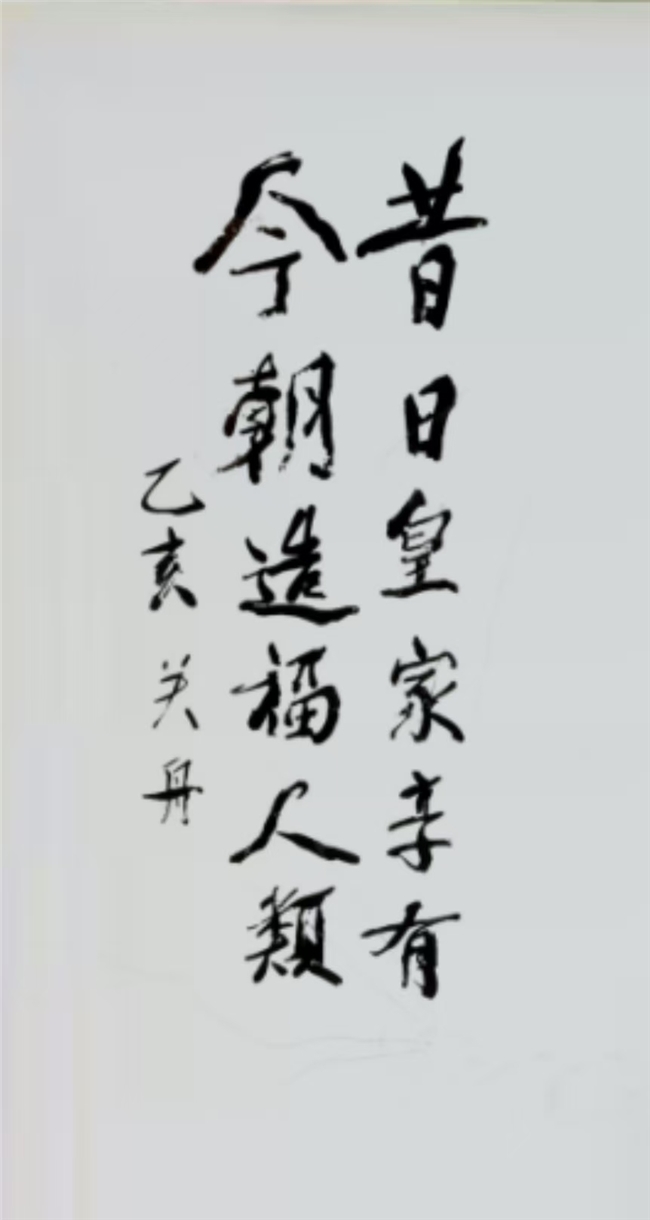 昔日皇家享有
今朝造福人類
乙亥 关丹